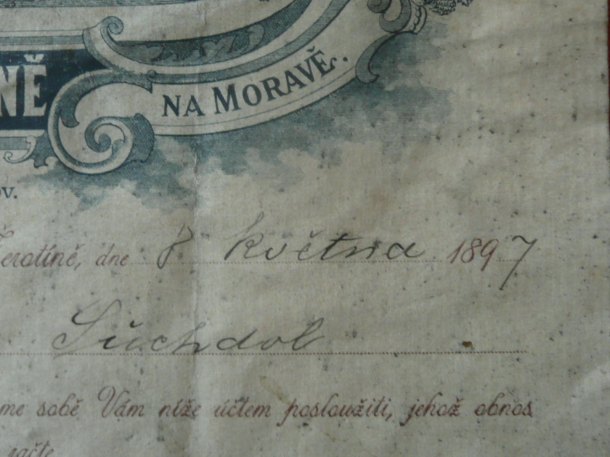 NĚ
NA MORAVĚ.
ov.
Žerotíně, dne 8 května 1897
Suchdol
me sobě Vám níže účtem posloužiti, jehož obnos
račte